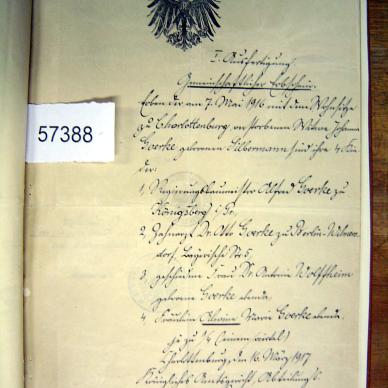 I. Ausfertigung.
Gemeinschaftlicher Erbschein.
Erben der am 7. Mai 1916 mit dem Wohnsitze
57388
zu Charlottenburg verstorbenen Witwe Johanna
Goerke geborenen Silbermann sind ihre 4 Kin
der:
1, Regierungsbaumeister Alfred Goerke zu
Königsberg i/Pr,
2, Zahnarzt Dr. Otto Goerke zu Berlin-Wilmers
dorf, Bayerische Str 5,
3, geschiedene Frau Dr Antonie Wolffheim
geborene Goerke ebenda,
4, Fräulein Marie Goerke ebenda,
je zu 1/4 (einem viertel)
Charlottenburg, den 16. März 1917
Königliches Amtsgericht, Abteilung